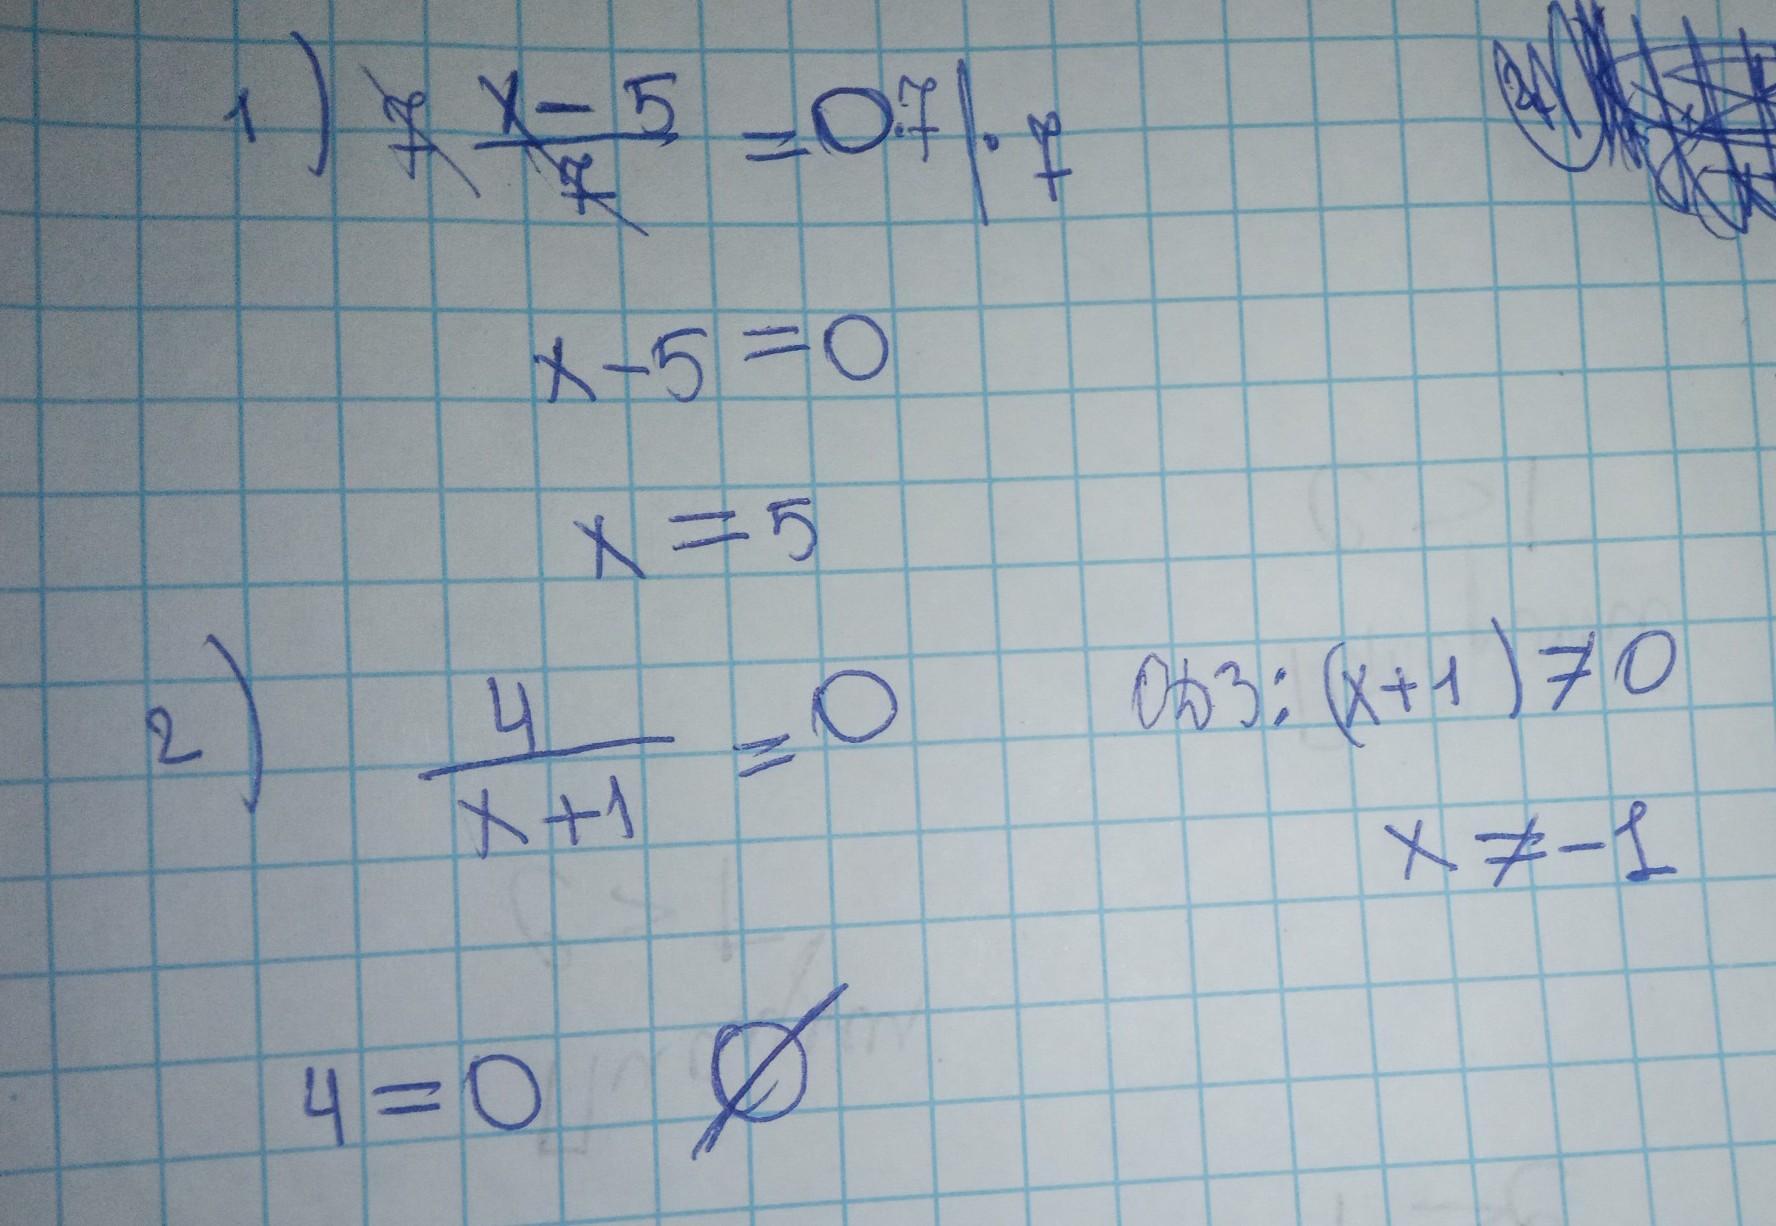 1) 7 x-5/7 = 0·7 |·7
x-5=0
x=5
2) 4/x+1 = 0 ОДЗ: (x+1)≠0
x≠-1
4=0 ∅